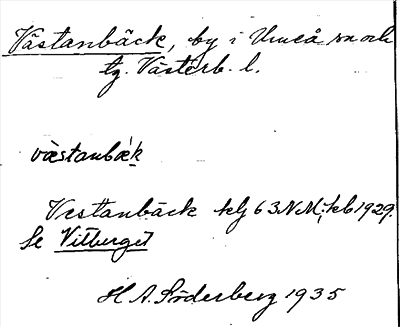 Västanbäck, by i Umeå sn och
tg. Västerb. l.
væstanbæ̀k
Vestanbäck klj 63 NM; kb 1929.
Se Vitberget
H. A. Söderberg 1935